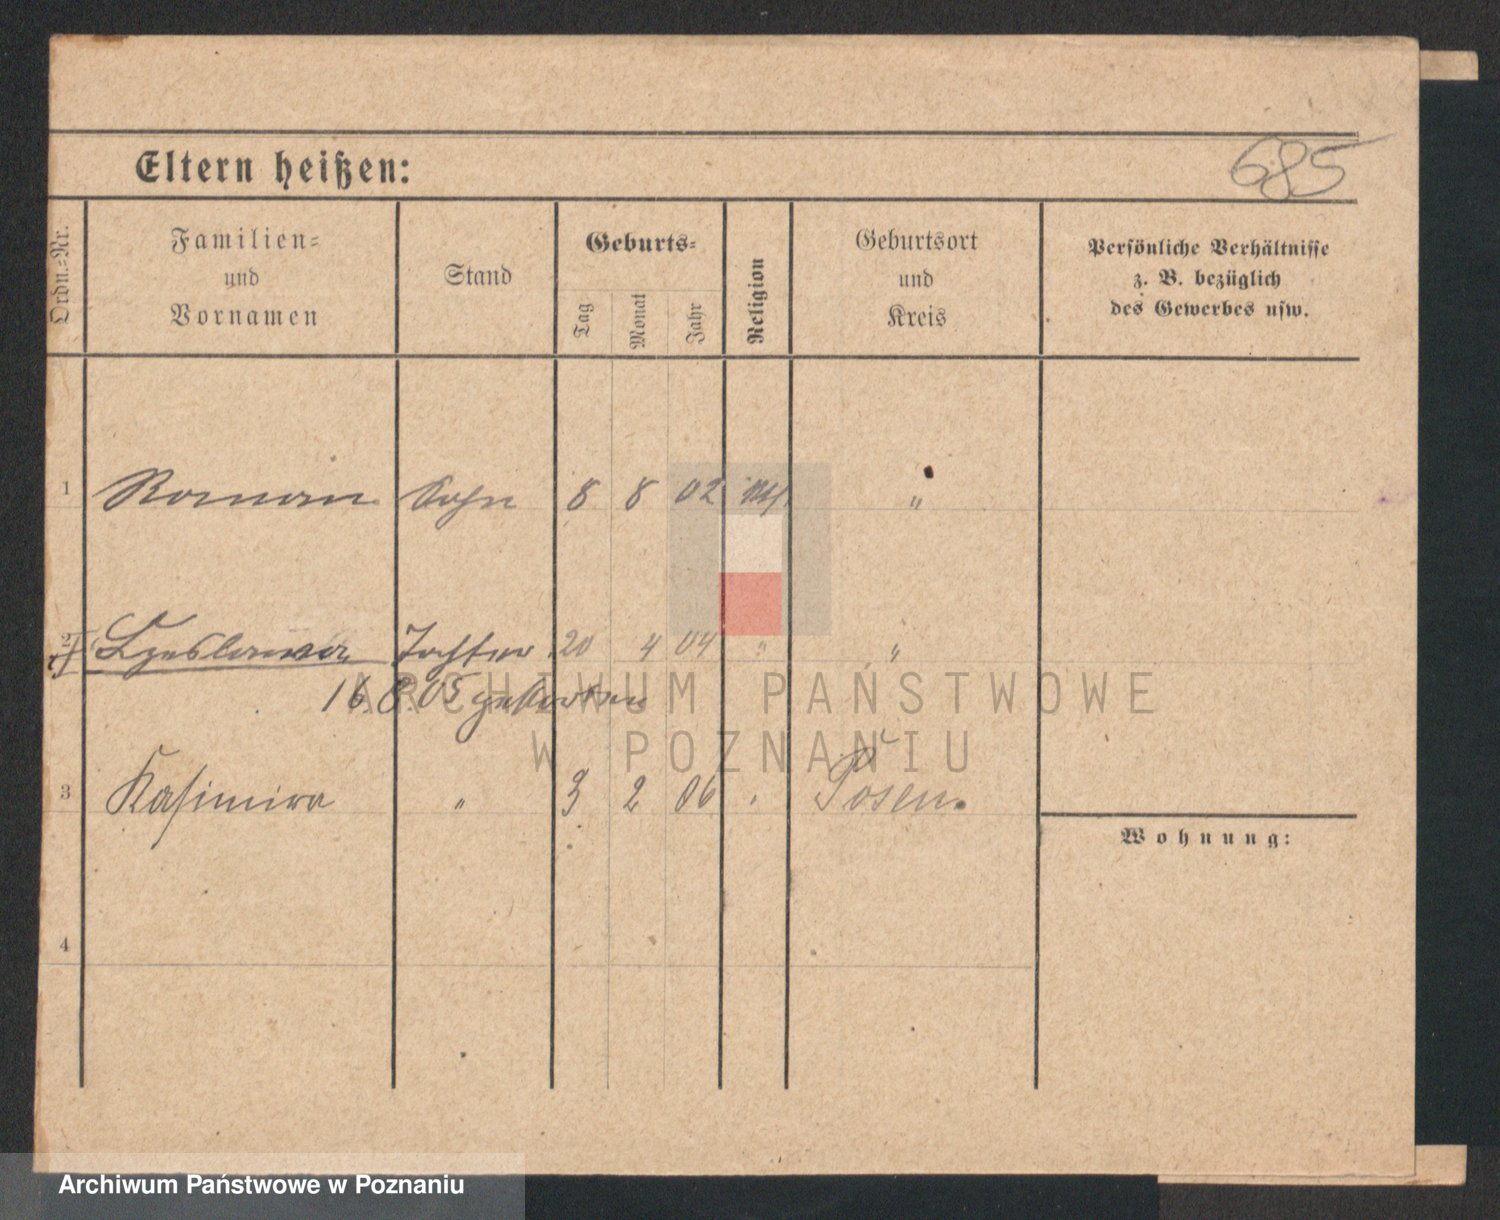 Eltern heißen:
685
Ordn.-Nr.
Familien-
und
Vornamen
Stand
Geburts-
Tag
Monat
Jahr
Religion
Geburtsort
und
Kreis
Persönliche Verhältnisse
z. B. bezüglich
des Gewerbes usw.
1 Roman Sohn 8 8 02 "
2 Czeslawa Tochter 20 4 04 " "
16.8.05 gestorben
3 Kasimira " 3 2 06 " Posen.
Wohnung:
4
ARCHIWUM PAŃSTWOWE
W POZNANIU
Archiwum Państwowe w Poznaniu